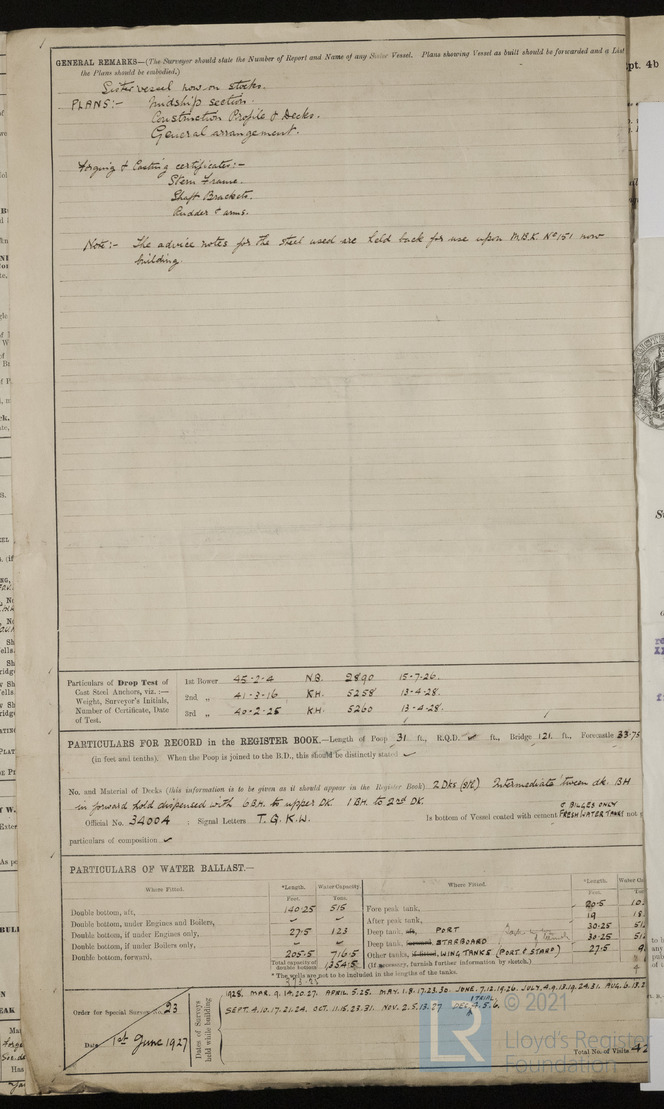 GENERAL REMARKS—(The Surveyor should state the Number of Report and Name of any Sister Vessel. Plans showing Vessel as built should be forwarded and a List
the Plans should be embodied.)
Sister vessel now on stocks.
PLANS:- Midship section.
Construction Profile & Decks.
General arrangement.
Forging & Casting certificates:-
Stern Frame.
Shaft Brackets.
Rudder & arms.
Note:- The advice notes for the steel used are held back for use upon M.B.K. No 151 now
building.
Particulars of Drop Test of
Cast Steel Anchors, viz. :—
Weight, Surveyor's Initials,
Number of Certificate, Date
of Test.
1st Bower 45-2-4 N.B. 2890 15-7-26.
2nd „ 41-3-16 K.H. 5258 13-4-28.
3rd „ 40-2-25 K.H. 5260 13-4-28.
PARTICULARS FOR RECORD in the REGISTER BOOK.—Length of Poop 31 ft., R.Q.D. ft., Bridge 121 ft., Forecastle 33·75
(in feet and tenths). When the Poop is joined to the B.D., this should be distinctly stated
No. and Material of Decks (this information is to be given as it should appear in the Register Book) 2 Dks (stl) Intermediate tween dk. BH
in forward hold dispensed with 6 BH. to upper DK. 1 BH. to 2nd DK.
Official No. 34004 ; Signal Letters T. G. K. W. Is bottom of Vessel coated with cement BILGES ONLY FRESH WATER TANKS not
particulars of composition
PARTICULARS OF WATER BALLAST.—
Where Fitted. *Length. Water Capacity. Where Fitted. *Length.
Feet. Tons. Feet.
Double bottom, aft, 140·25 515
Double bottom, under Engines and Boilers,
Double bottom, if under Engines only, 27·5 123
Double bottom, if under Boilers only,
Double bottom, forward, 205·5 716·5
Total capacity of double bottom 1354·5
Fore peak tank, 20·5
After peak tank, 19
Deep tank, aft, PORT 30·25
Deep tank, forward, STARBOARD 30·25
Other tanks, if fitted, WING TANKS (PORT & STARD) 27·5
(If necessary, furnish further information by sketch.)
* The wells are not to be included in the lengths of the tanks.
373·25
Order for Special Survey No. 23
Date 1st June 1927
Dates of Surveys
held while building
1928. MAR. 9. 14. 20. 27. APRIL. 5. 25. MAY. 1. 8. 17. 23. 30. JUNE. 7. 12. 19. 26. JULY. 4. 9. 13. 19. 24. 31. AUG. 6. 13. 2
SEPT. 4. 10. 17. 21. 24. OCT. 11. 15. 23. 31. NOV. 2. 5. 13. 27 DEC. 3. 5. 6.
TRIAL
Total No. of Visits 42
© 2021
LR
Lloyd's Register
Foundation